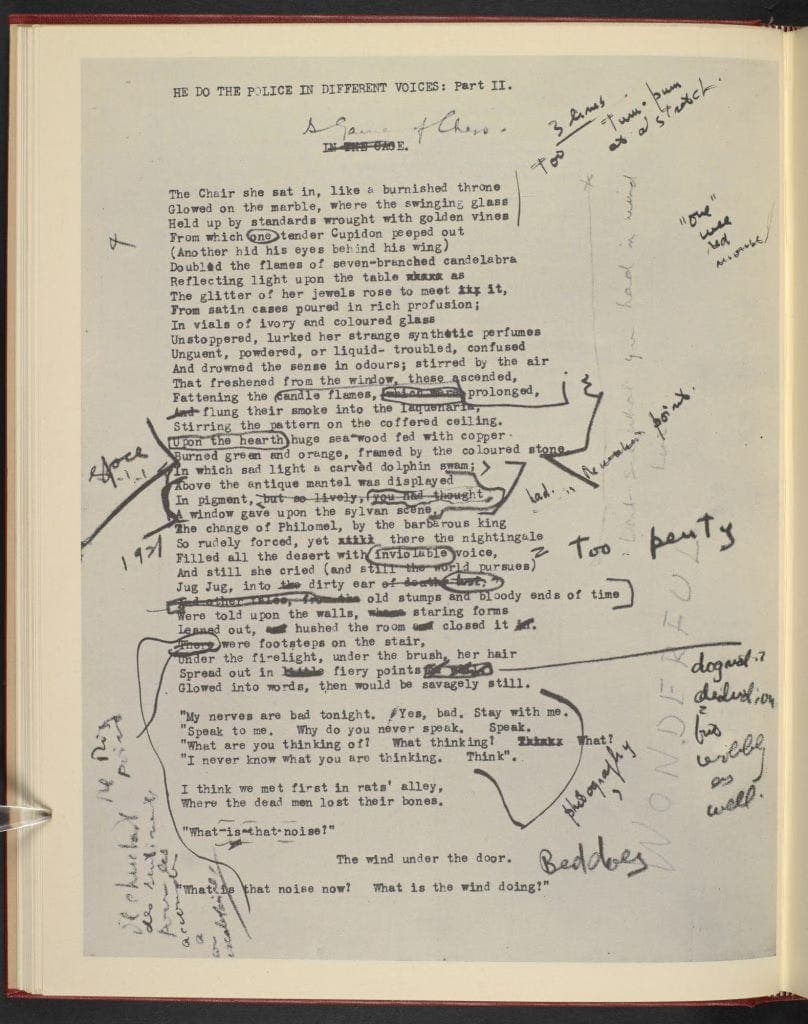 HE DO THE POLICE IN DIFFERENT VOICES: Part II.
A Game of Chess.
IN THE CAGE.
3 lines
Too tum-pum
at a stretch
The Chair she sat in, like a burnished throne
Glowed on the marble, where the swinging glass
Held up by standards wrought with golden vines
From which one tender Cupidon peeped out
(Another hid his eyes behind his wing)
Doubled the flames of seven-branched candelabra
Reflecting light upon the table as
The glitter of her jewels rose to meet it,
From satin cases poured in rich profusion;
In vials of ivory and coloured glass
Unstoppered, lurked her strange synthetic perfumes
Unguent, powdered, or liquid- troubled, confused
And drowned the sense in odours; stirred by the air
That freshened from the window, these ascended,
Fattening the candle flames, which were prolonged,
And flung their smoke into the laquenaria,
Stirring the pattern on the coffered ceiling.
Upon the hearth huge sea-wood fed with copper
Burned green and orange, framed by the coloured stone
In which sad light a carved dolphin swam;
Above the antique mantel was displayed
In pigment, but so lively, you had thought
A window gave upon the sylvan scene,
The change of Philomel, by the barbarous king
So rudely forced, yet there the nightingale
Filled all the desert with inviolable voice,
And still she cried (and still the world pursues)
Jug Jug, into the dirty ear of death lust;
And other tales, from the old stumps and bloody ends of time
Were told upon the walls, where staring forms
Leaned out, and hushed the room and closed it in.
There were footsteps on the stair,
Under the firelight, under the brush, her hair
Spread out in little fiery points
Glowed into words, then would be savagely still.
"one"
wee
red
mouse
space
1921
too penty
dogmatic
deduction
but
wobbly
as
well.
WONDERFUL
"My nerves are bad tonight. Yes, bad. Stay with me.
"Speak to me. Why do you never speak. Speak.
"What are you thinking of? What thinking? Think What?
"I never know what you are thinking. Think".
photography
I think we met first in rats' alley,
Where the dead men lost their bones.
"What is that noise?"
The wind under the door.
Beddoes
"What is that noise now? What is the wind doing?"